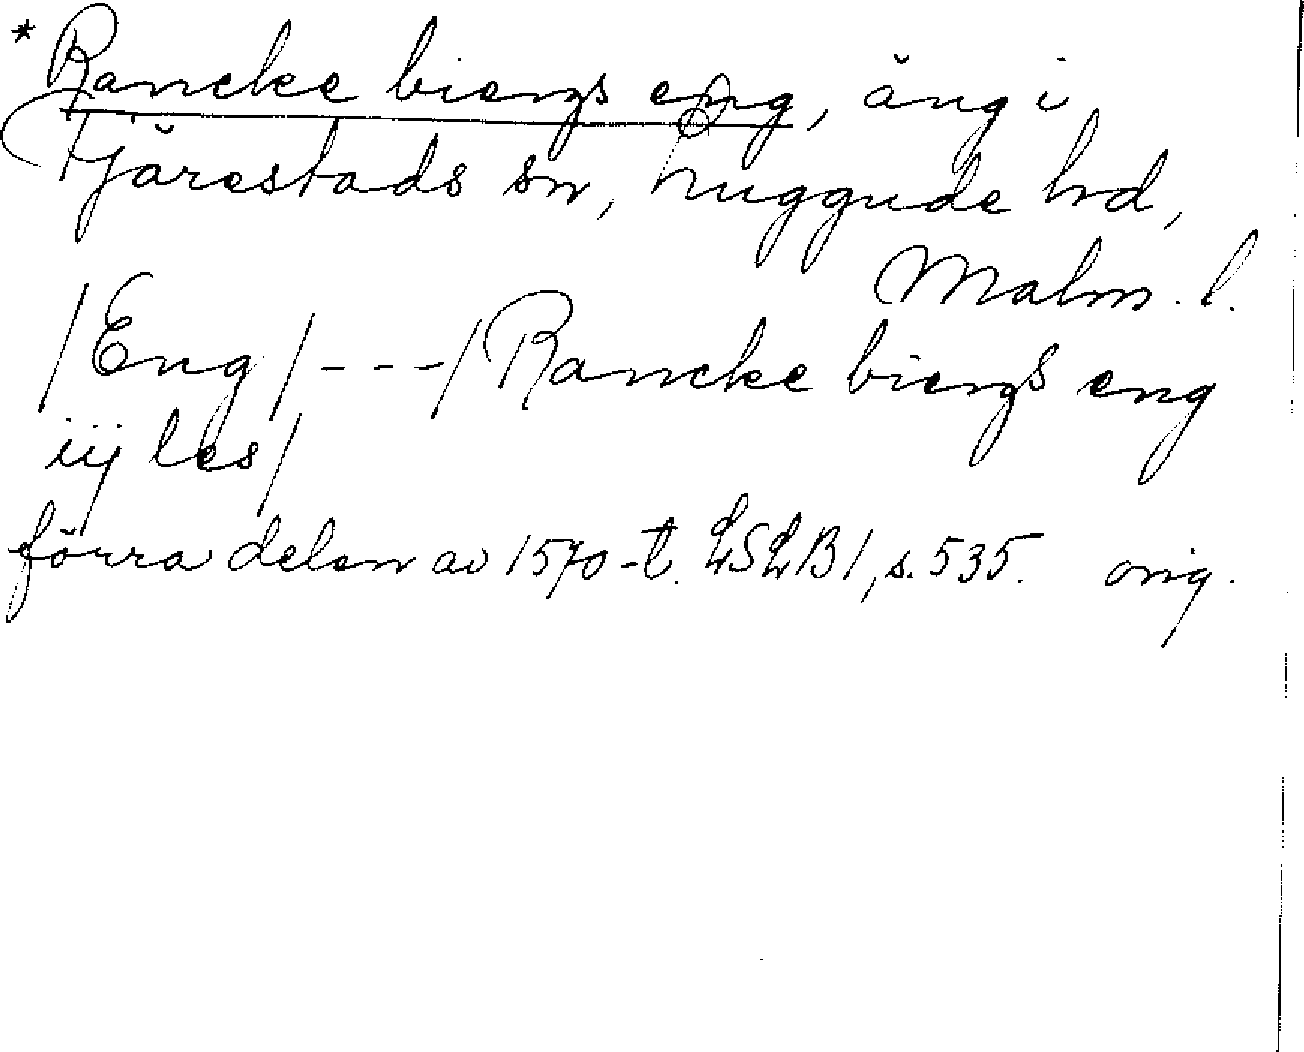 *Rancke biergs eng, äng i
Tjärestads sn, Luggude hd,
Malm. l.
/Eng/ - - - / Rancke biergs eng
iij les/
förra delen av 1570-t. LSLB1, s. 535. orig.